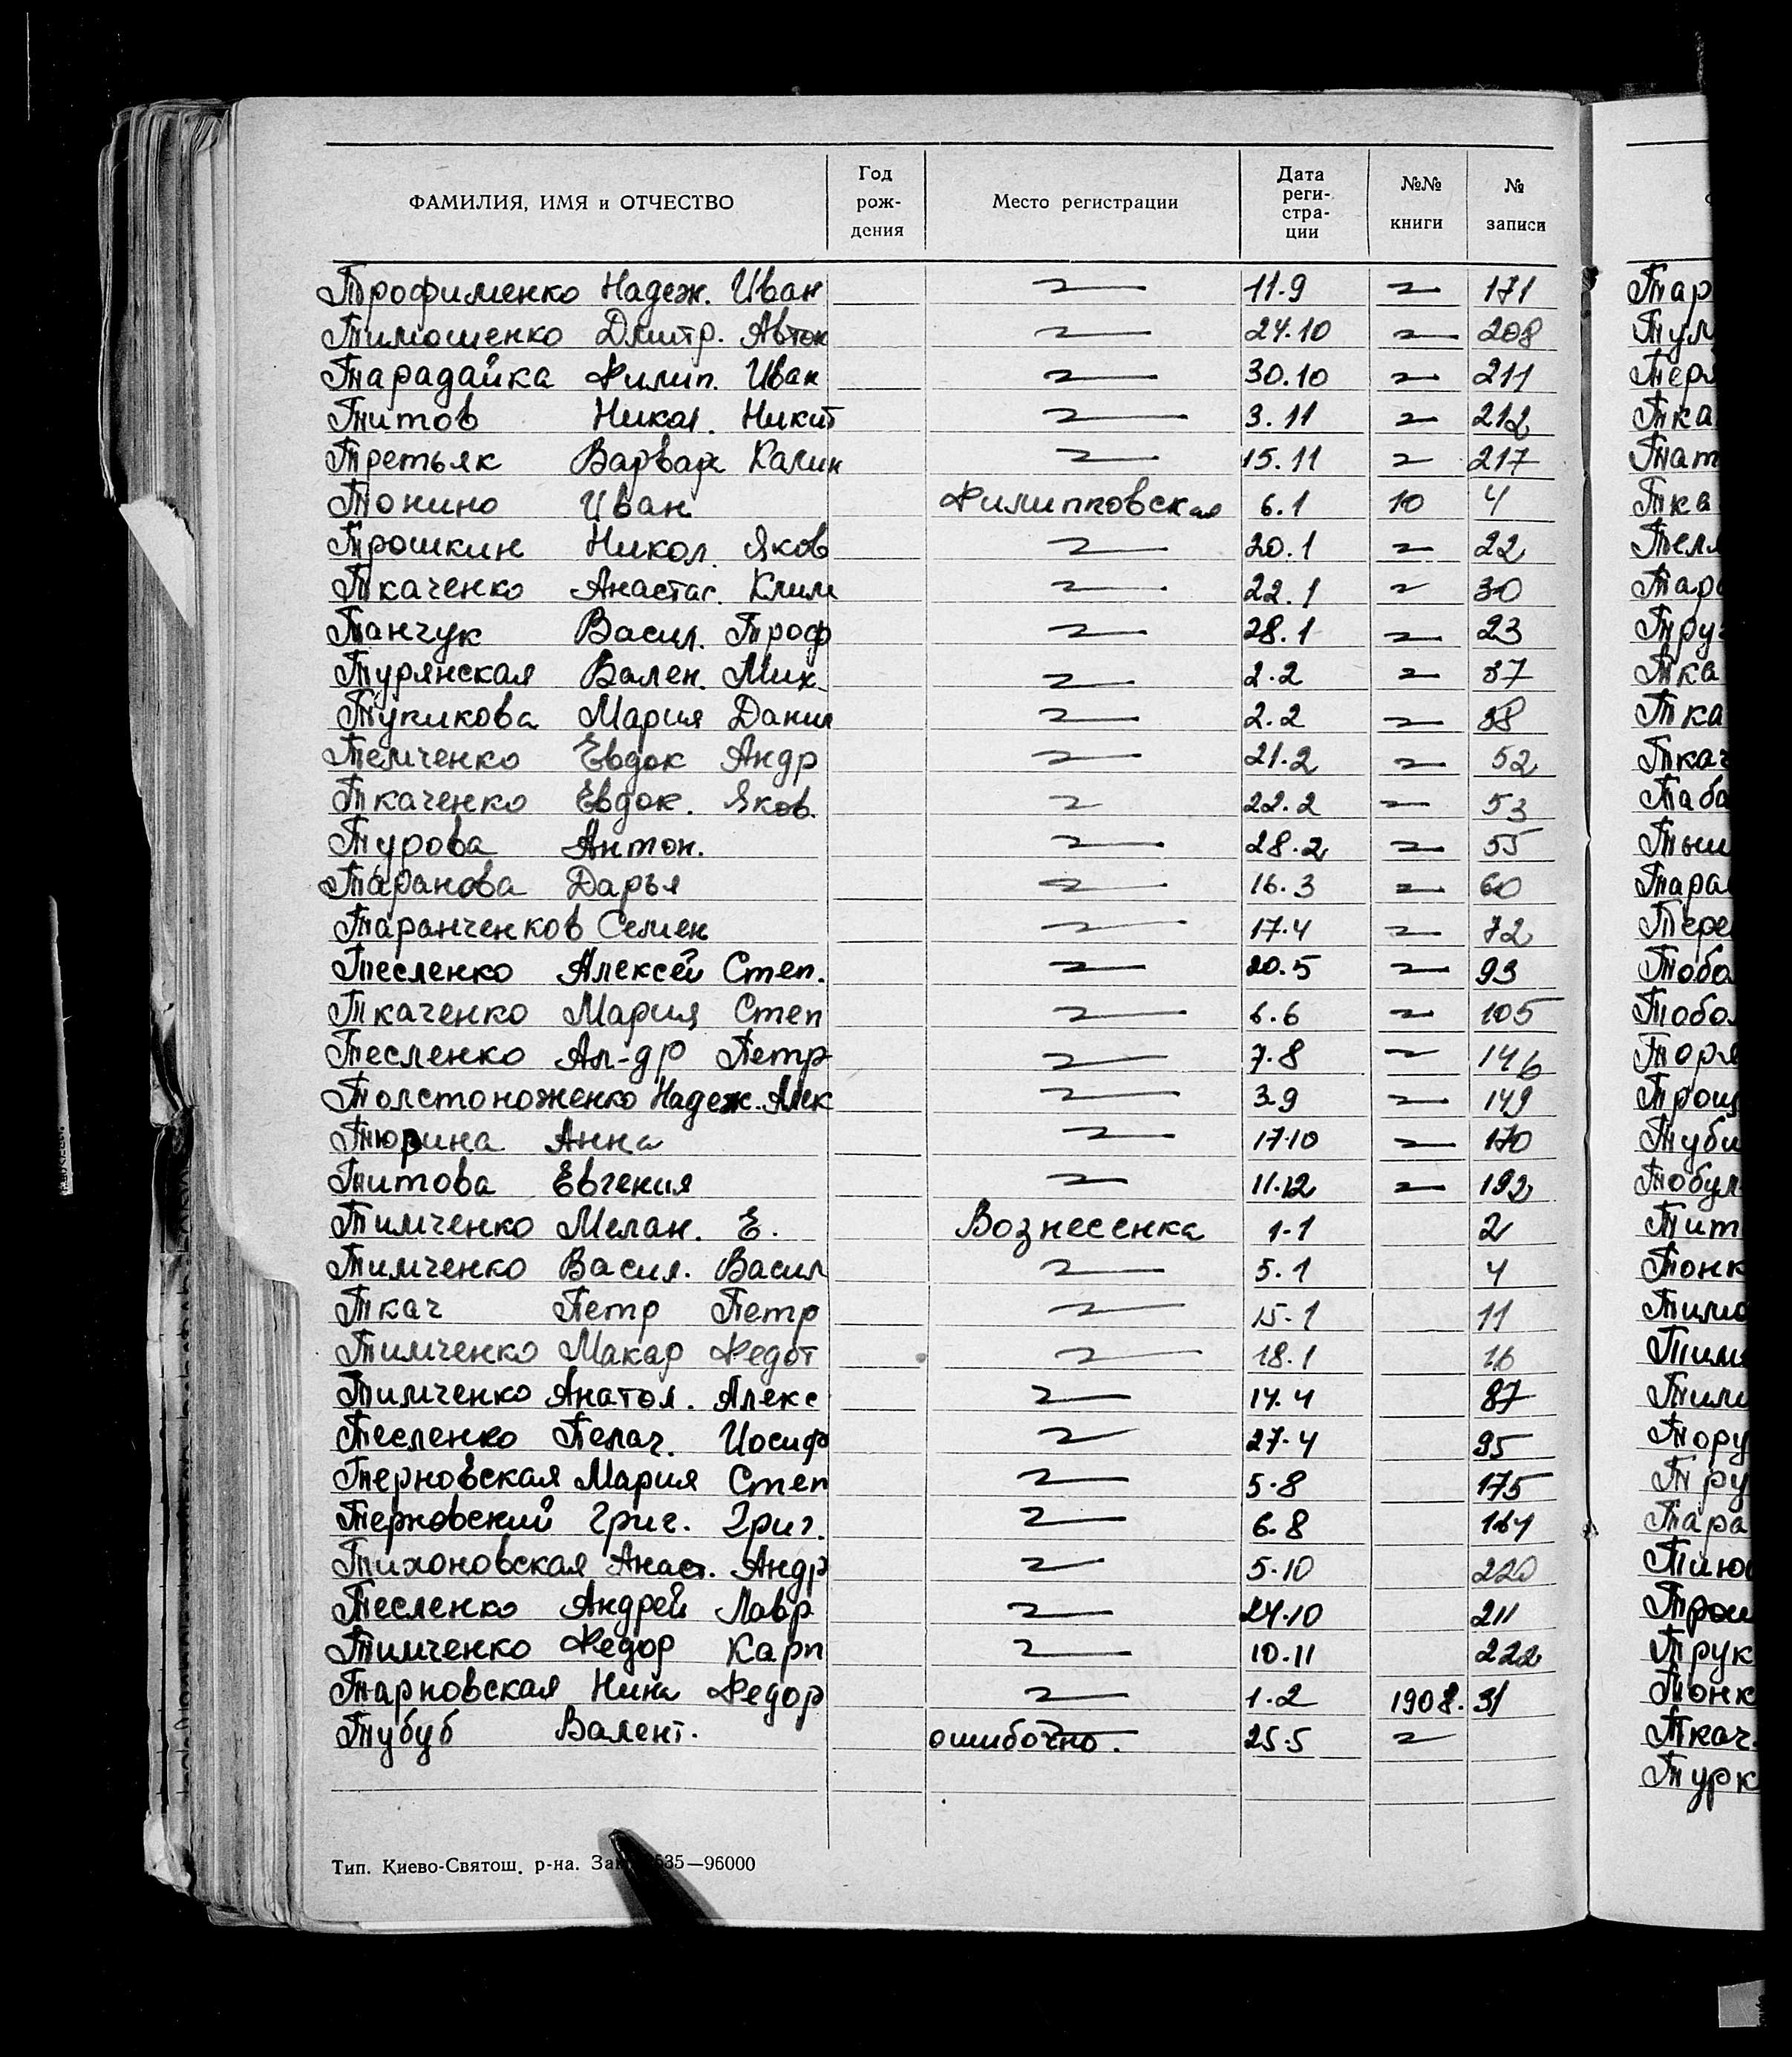 ФАМИЛИЯ, ИМЯ и ОТЧЕСТВО Год рождения Место регистрации Дата регистрации №№ книги № записи
Трофименко Надеж. Иван 11.9 171
Тимошенко Дмитр. Автон 24.10 208
Тарадайка Филип. Иван 30.10 211
Титов Никол. Никит 3.11 212
Третьяк Варвар Калин 15.11 217
Тонино Иван Филипповская 6.1 10 4
Трошкин Никол. Яков 20.1 22
Ткаченко Анастас. Клим 22.1 30
Танчук Васил. Троф 28.1 23
Турянская Вален. Мих. 2.2 37
Тупикова Мария Данил 2.2 38
Темченко Евдок Андр 21.2 52
Ткаченко Евдок. Яков. 22.2 53
Турова Антон. 28.2 55
Таранова Дарья 16.3 60
Таранченков Семен 17.4 72
Тесленко Алексей Степ. 20.5 93
Ткаченко Мария Степ 6.6 105
Тесленко Ал-др Петр 7.8 146
Толстоноженко Надеж. Алек 3.9 149
Тюрина Анна 17.10 170
Титова Евгения 11.12 192
Тимченко Мелан. Е. Вознесенка 1.1 2
Тимченко Васил. Васил 5.1 4
Ткач Петр Петр 15.1 11
Тимченко Макар Федот 18.1 16
Тимченко Анатол. Алекс 14.4 87
Тесленко Пелаг. Иосиф 27.4 95
Терновская Мария Степ 5.8 175
Терновский Григ. Григ. 6.8
Тихоновская Анаст. Андр 5.10 220
Тесленко Андрей Лавр 24.10 211
Тимченко Федор Карп 10.11 222
Тарновская Нина Федор 1.2 1908. 31
Тубуб Валент. ошибочно. 25.5
Тип. Киево-Святош. р-на. 535—96000